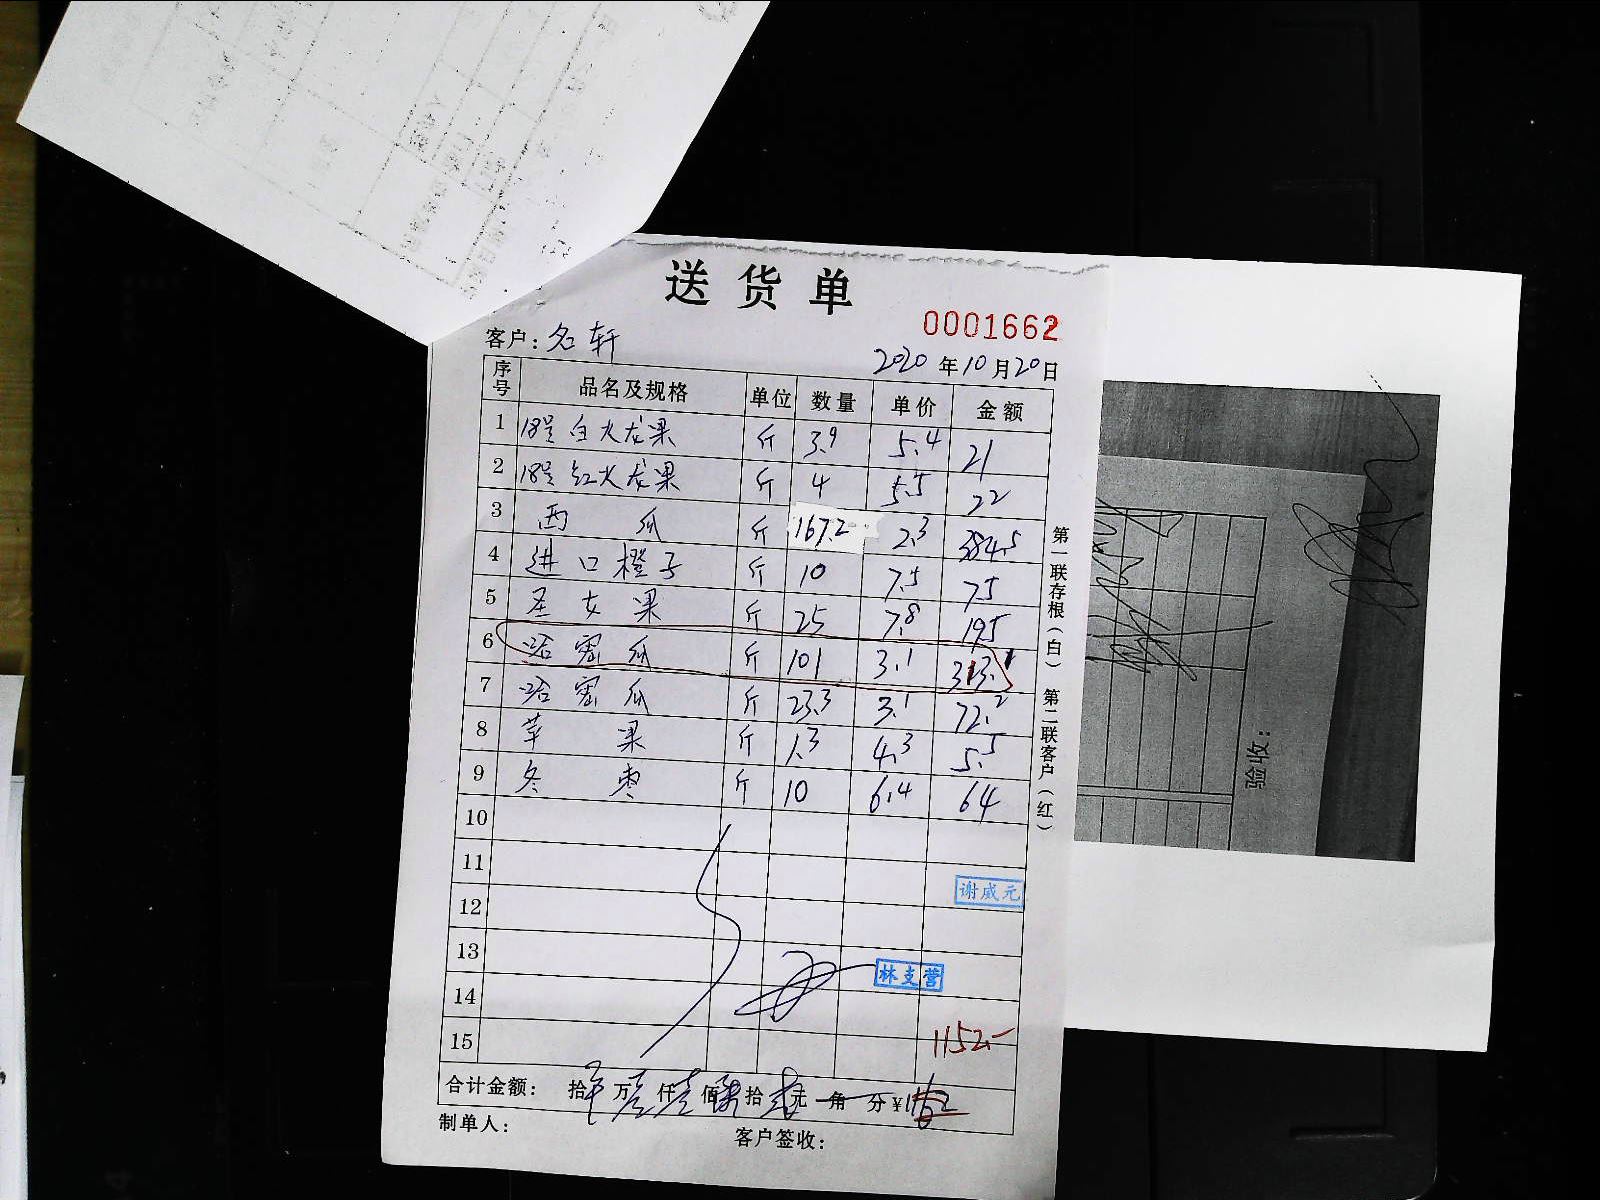 送货单
0001662
客户：名轩
2020年10月20日
序号 品名及规格 单位 数量 单价 金额
1 18号白火龙果 斤 3.9 5.4 21
2 18号红火龙果 斤 4 5.5 22
3 西瓜 斤 167.2 2.3 384.5
4 进口橙子 斤 10 7.5 75
5 圣女果 斤 25 7.8 195
6 哈密瓜 斤 101 3.1 313.1
7 哈密瓜 斤 23.3 3.1 72.2
8 苹果 斤 1.3 4.3 5.5
9 冬枣 斤 10 6.4 64
10
11
谢威元
12
13
林支营
14
15 1152.-
合计金额： 拾 万 壹 仟 壹 佰 拾 元 角 分 ¥
制单人： 客户签收：
第一联存根（白） 第二联客户（红）
验收：